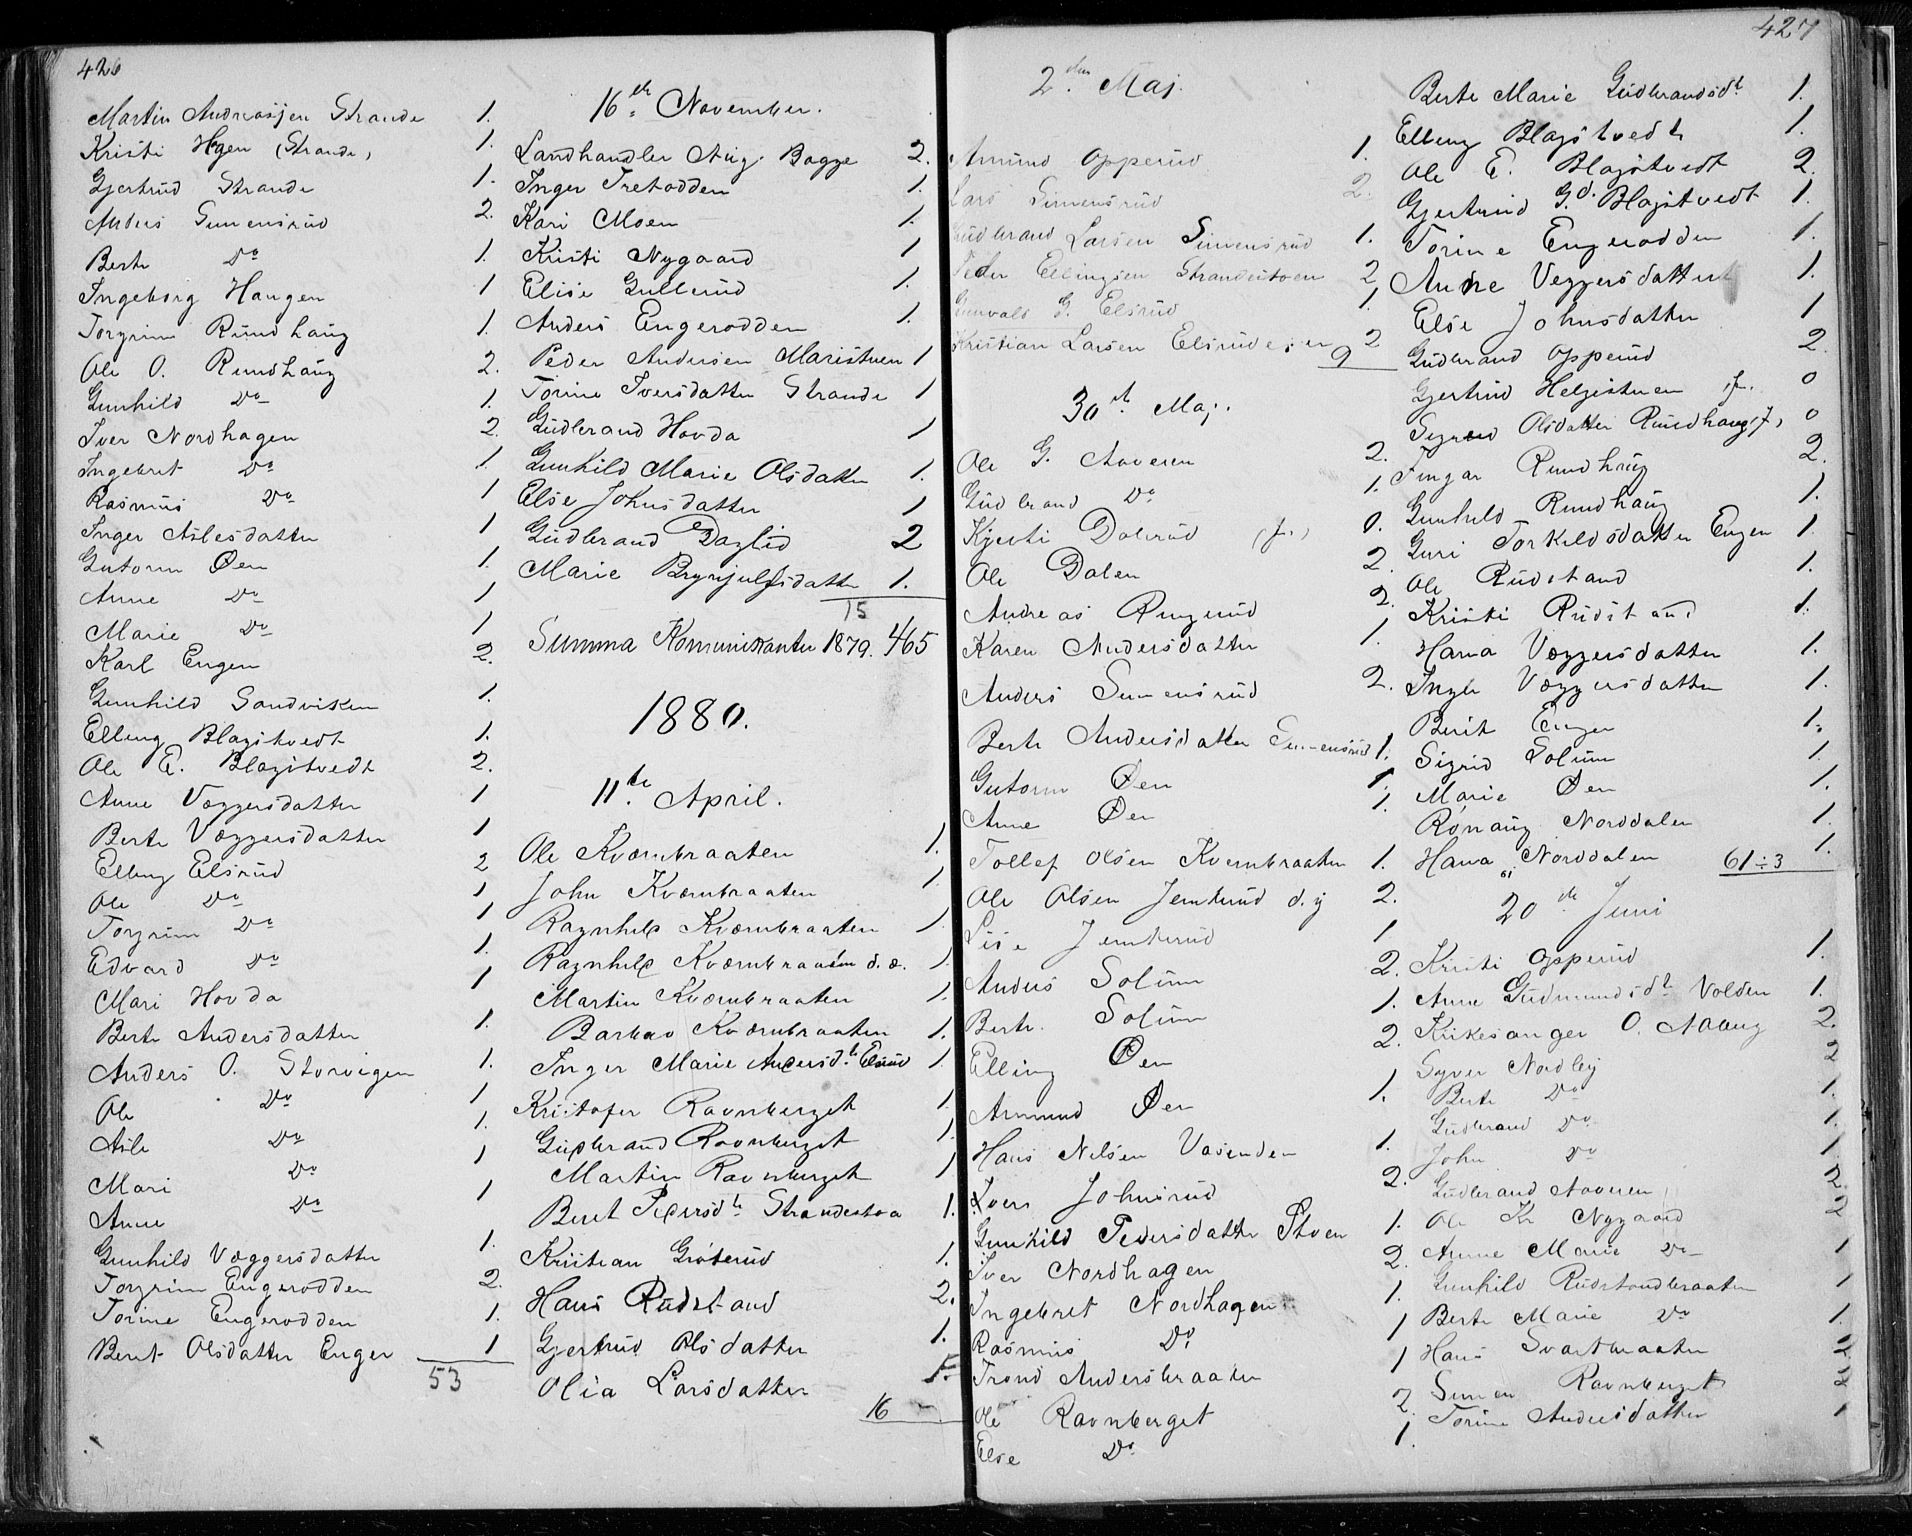 426
Martin Andreasjen Strande 1.
Kristi Hgen (Strande) 1.
Gjertrud Strande 1.
Anders Simensrud 2.
Berte Do 1.
Ingeborg Haugen 1
Torgrim Rundhaug 1.
Ole O. Rundhaug 2.
Gunhild Do 1.
Iver Nordhagen 2.
Ingebret Do 1.
Rasmus Do 1
Inger Aslesdatter 1
Gutorm Øen 1.
Anne Do 1
Marie Do 1
Karl Engen 2.
Gunhild Sandviken 1.
Elling Blagstvedt 1.
Ole E. Blagstvedt 2.
Anne Væggersdatter 1
Berte Væggersdatter 1
Elling Elsrud 2
Ole Do 1
Torgrim Do 1
Edvard Do 1.
Mari Hovda 1
Berte Andersdatter 1.
Anders O. Storvigen 1.
Ole Do 1
Asle Do 1.
Mari Do 1
Anne Do 1
Gunhild Væggersdatter 1.
Torgrim Engerodden 2.
Torine Engerodden 1.
Berit Olsdatter Enger 1
53
16th November.
Landhandler Aug. Bagge 2.
Inger Tretodden 1.
Kari Moen 1.
Kristi Nygaard 1
Elise Gullerud 1.
Anders Engerodden 1.
Peder Andersen Maristuen 1
Torine Iversdatter Strande 1
Gudbrand Hovda 1
Gunhild Marie Olsdatter 1.
Else Johnsdatter 1
Gudbrand Daglid 2
Marie Brynjulfsdatter 1.
15
Summa Komunikanter 1879. 465
1880.
11te April.
Ole Kværnbraaten 1.
John Kværnbraaten 1.
Ragnhild Kværnbraaten 1.
Ragnhild Kværnbraaten d.æ. 1.
Martin Kværnbraaten 1.
Barbao Kværnbraaten 1.
Inger Marie Andersdt Elsrud 1
Kristofer Ravnberget 1
Gudbrand Ravnberget 1.
Martin Ravnberget 1
Beret Pedersdt Strandestoa 1.
Kristian Grøterud 1.
Hans Rudstand 2.
Gjertrud Olsdatter 1.
Olia Larsdatter 1.
16
427
2den Maj.
Amund Opperud 1.
Lars Simensrud 2.
Gudbrand Larsen Simensrud 1.
Peder Ellingsen Strandestoen 2
Gunvald G. Elsrud 1
Kristian Larsen Elsrudeier 2
9
30te Maj.
Ole G. Aaveren 2.
Gudbrand Do 1.
Kjersti Dalerud (f.) 0.
Ole Dalen 2.
Andreas Ringerud 2.
Karen Andersdatter 1.
Anders Simensrud 2.
Berte Andersdatter Simensrud 1.
Gutorm Øen 1.
Anne Øen 1.
Tollef Olsen Kvernbraaten 1.
Ole Olsen Jemterud d.y 2.
Lise Jemterud 1
Anders Solum 2.
Berte Solum 1.
Elling Øen 2.
Ammund Øen 1.
Hans Nilsen Vasenden 1.
Iver Johnsrud 2.
Gunhild Pedersdatter Stoen 1.
Iver Nordhagen 2.
Ingebret Nordhagen 1.
Rasmus Do 1
Trond Andersbraaten 1
Ole Ravnberget 2.
Else Do 1.
Berte Marie Gudbrandsdt 1.
Elling Blagstvedt 1.
Ole E. Blagstvedt 2.
Gjertrud G.d. Blagstvedt 1.
Torine Engerodden 1.
Anne Veggersdatter 1.
Else Johnsdatter 1
Gudbrand Opperud 2.
Gjertrud Helgestuen f. 0
Sigrid Olsdatter Rundhaug f, 0
Ingar Rundhaug 2.
Gunhild Rundhaug 1.
Guri Torkildsdatter Engen 1
Ole Rudstand 1.
Kristi Rudstand 1.
Hanna Væggersdatter 1.
Ingle Væggersdatter 1.
Berit Enger 1.
Sigrid Solum 1.
Marie Øen 1.
Rønaug Norddalen 1.
Hanna Norddalen 1.
61÷3
20de Juni
Kristi Opperud 1.
Anne Gudmundsdt Volden 1.
Kirkesanger O. Moberg 2.
Syver Nordby 2
Berte Do 1.
Gudbrand Do 1.
John Do 1
Gudbrand Aaveren 2.
Ole Kr Nygaard 2
Anne Marie Do 1
Gunhild Rudstandbraaten 1
Berte Marie Do 1.
Hans Svartbraaten 2
Simen Ravnberget 2
Torine Andersdatter 1